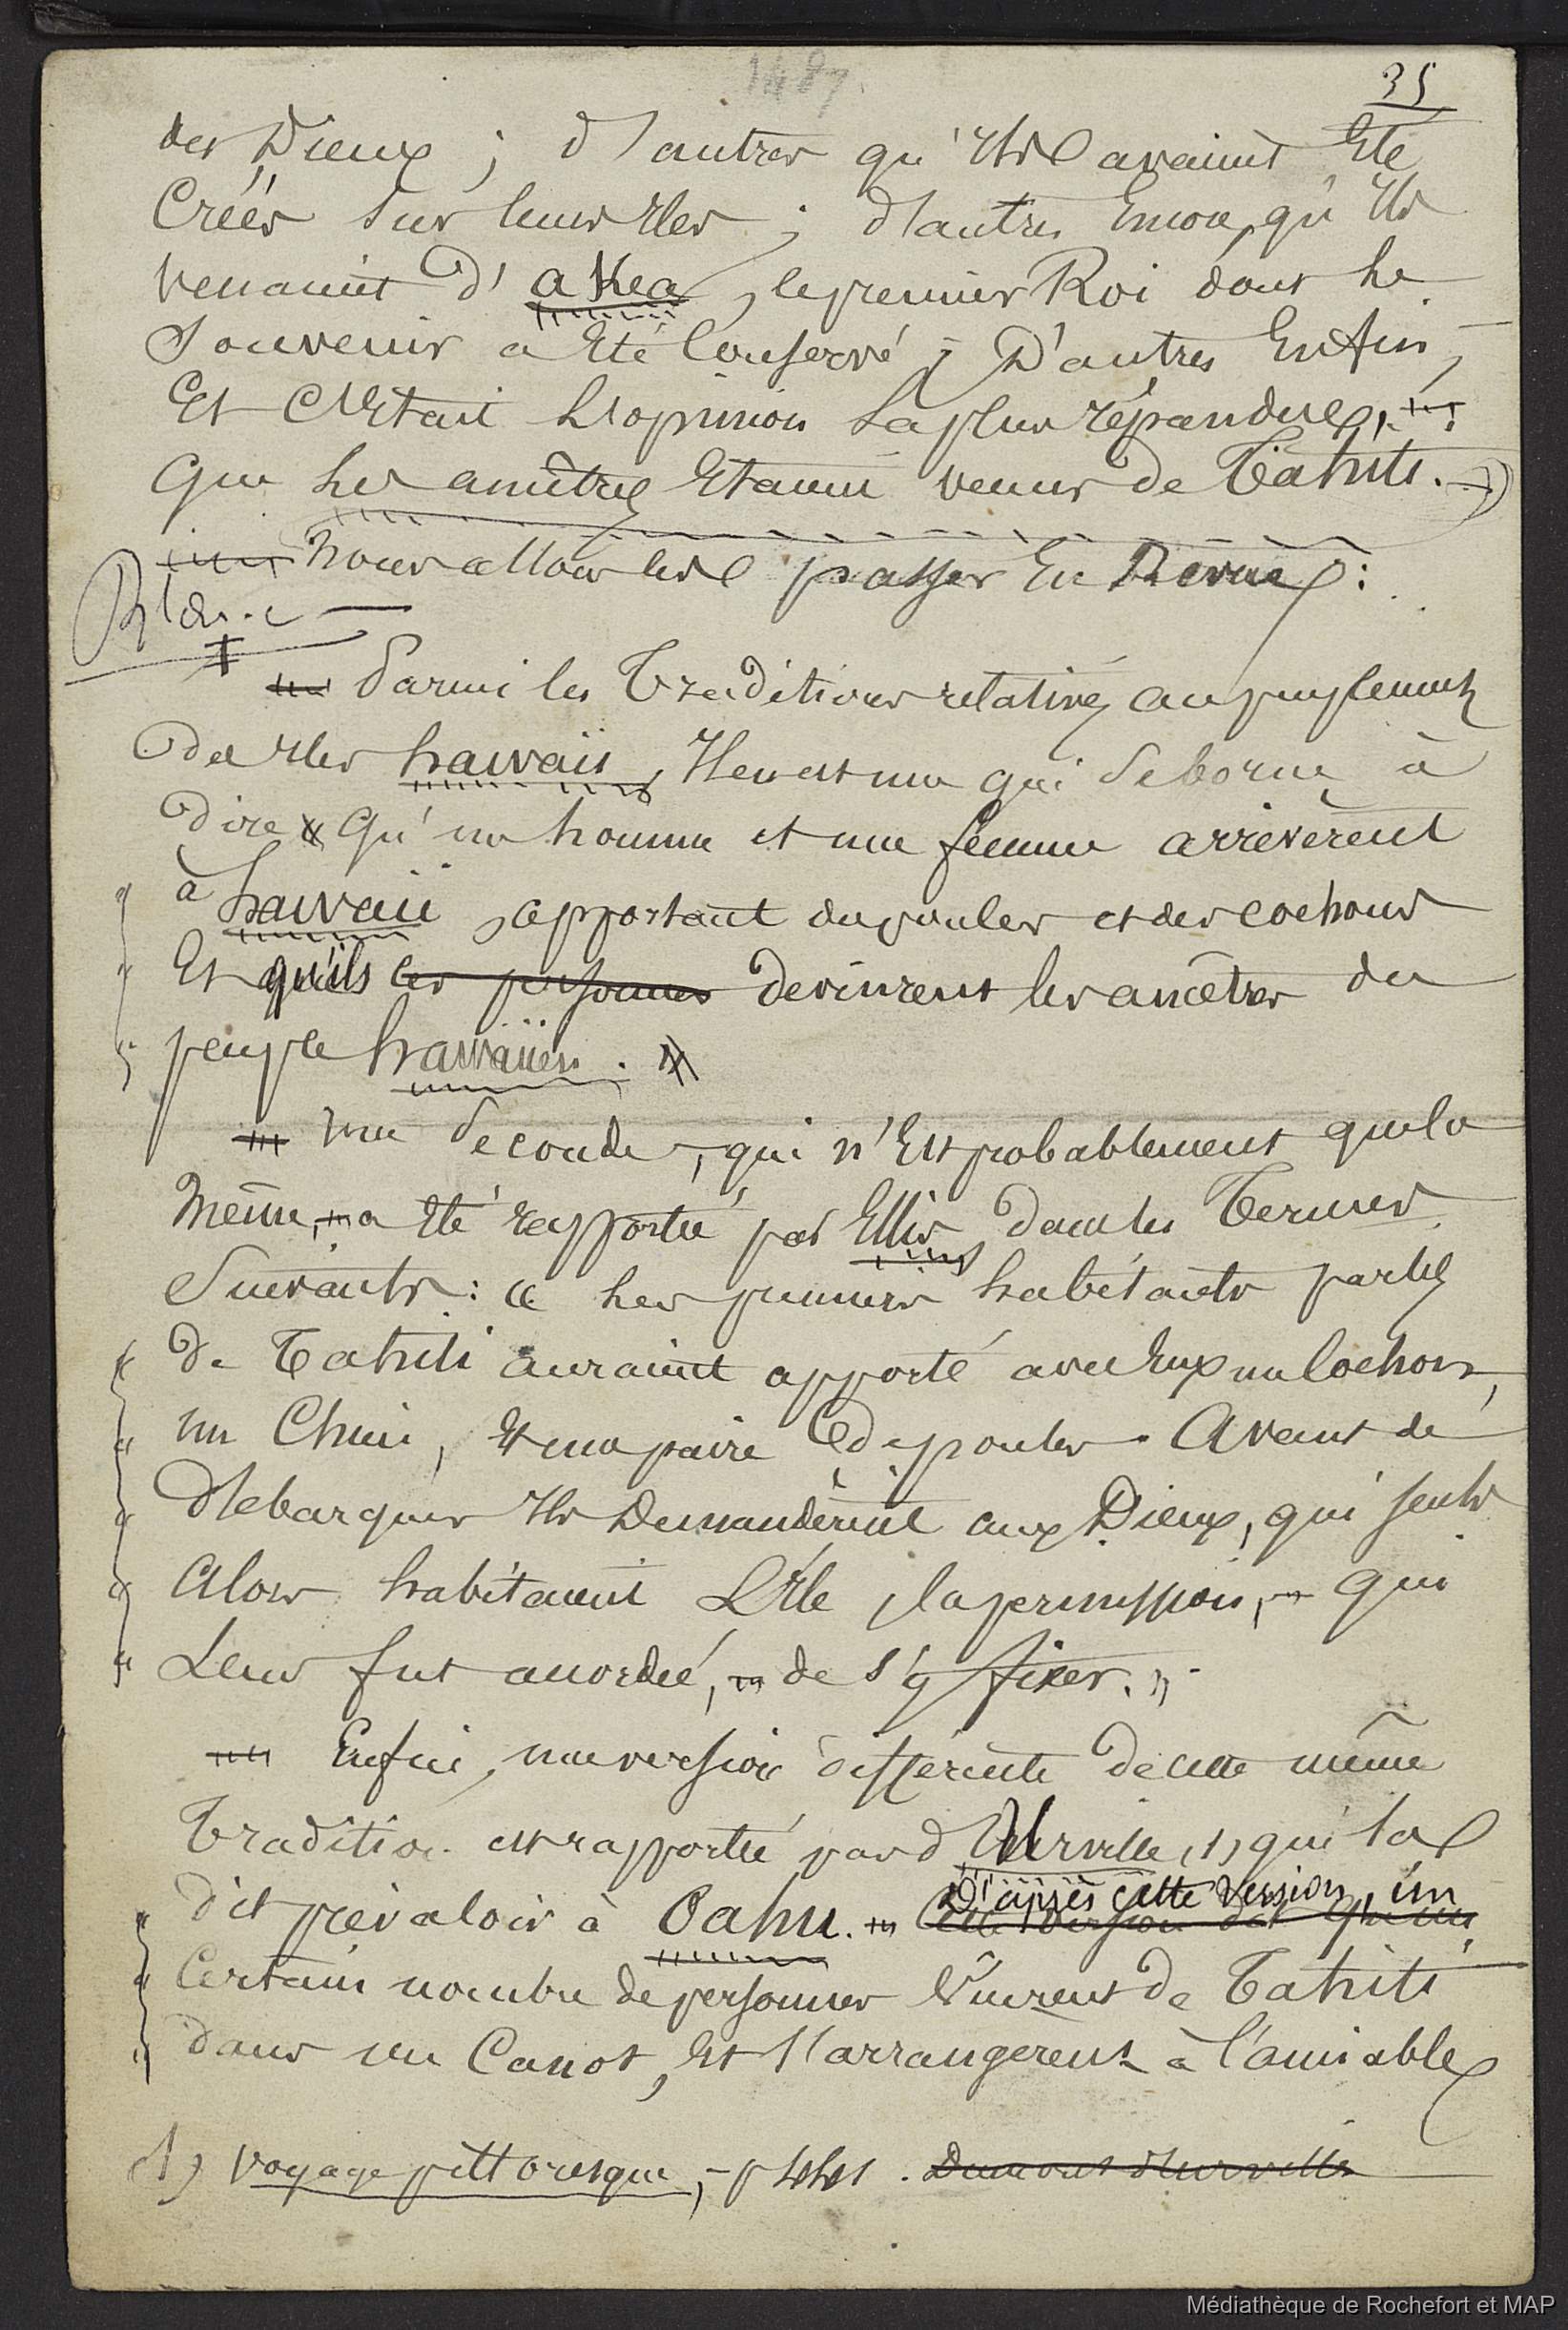 1487
35
des Dieux ; d'autres qu'ils avaient Eté
Créés sur leurs Iles ; d'autres Encore, qu'Ils
venaient d'akea, le premier Roi dont le
Souvenir a Eté Conservé ; D'autres Enfin,
Et C'Etait L'opinion La plus répandue, —
Que les ancêtres Etaient venus de Tahiti. —)
— nous allons les passer En Revue :
Blanc —
— Parmi les Traditions relatives au peuplement
des Iles hawaii, Il en est une qui se borne à
dire qu'un homme et une femme arrivèrent
à hawaii, apportant des poules et des cochons
Et qu'ils ces personnes devinrent les ancêtres du
peuple hawaiien.
— une seconde, qui n'Est probablement que la
même, — a Eté rapportée par Ellis, dans les Termes
Suivants : « Les premiers habitants partis
de Tahiti auraient apporté avec Eux un Cochon,
un Chien, Et une paire de poules. Avant de
débarquer Ils Demandèrent aux Dieux, qui seuls
alors habitaient L'Ile, la permission, — qui
Leur fut accordée, — de s'y fixer. »
— Enfin, une version différente de cette même
Tradition est rapportée par d'Urville, (1) qui la
D'après cette version, un
dit prévaloir à Oahu. — Cette version dit qu'un
Certain nombre de personnes Vinrent de Tahiti
dans un Canot, Et s'arrangerent à l'amiable
(1) Voyage pittoresque, — p Dumont d'Urville
Médiathèque de Rochefort et MAP